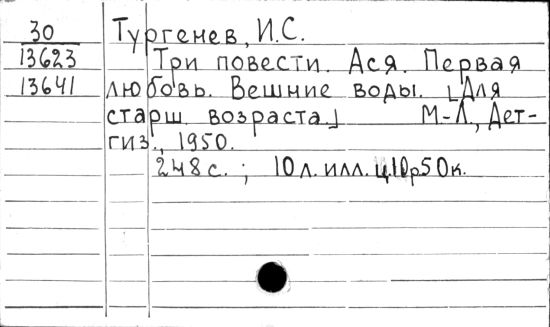 30 Тургенев, И.С.
13623 Три повести. Ася. Первая
13641 любовь. Вешние воды. [Для
старш. возраста.] М-Л., Дет-
гиз., 1950.
248с. ; 10л. илл. ц.10р50к.